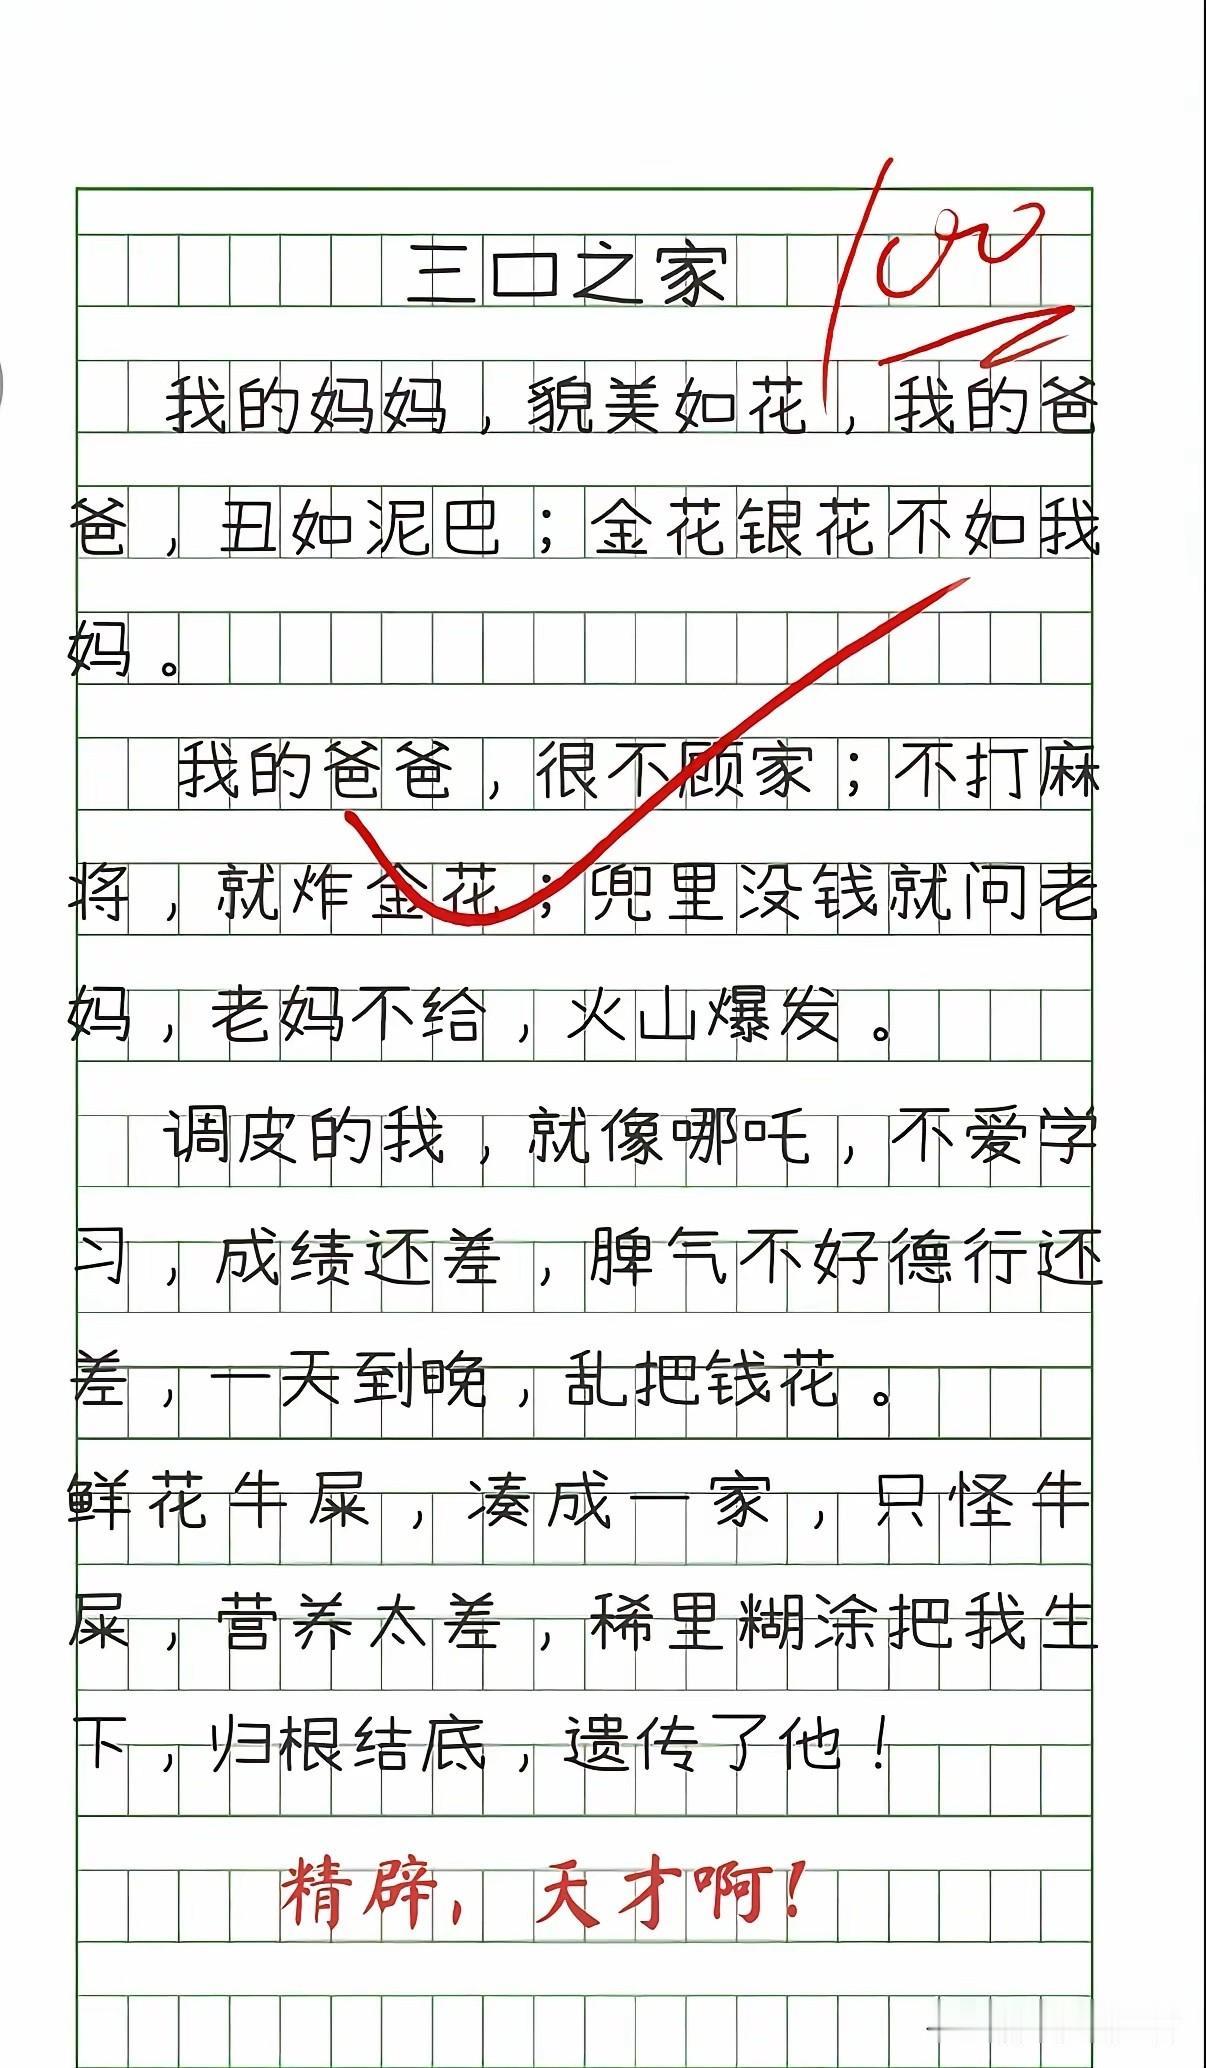 100
三口之家
我的妈妈，貌美如花，我的爸
爸，丑如泥巴；金花银花不如我
妈。
我的爸爸，很不顾家；不打麻
将，就炸金花；兜里没钱就问老
妈，老妈不给，火山爆发。
调皮的我，就像哪吒，不爱学
习，成绩还差，脾气不好德行还
差，一天到晚，乱把钱花。
鲜花牛屎，凑成一家，只怪牛
屎，营养太差，稀里糊涂把我生
下，归根结底，遗传了他！
精辟，天才啊！